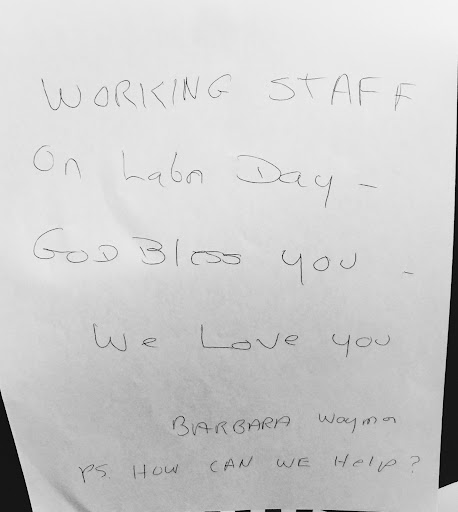 WORKING STAFF
On Labor Day -
GOD Bless you -
We Love you
BARBARA Wayman
PS. HOW CAN WE Help?